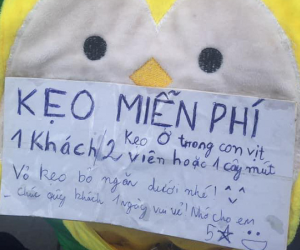 KẸO MIỄN PHÍ
Kẹo Ở trong con vịt
1 Khách/2 viên hoặc 1 cây mút
Vỏ kẹo bỏ ngăn dưới nhé!
- Chúc quý khách 1 ngày vui vẻ! Nhớ cho em
5☆